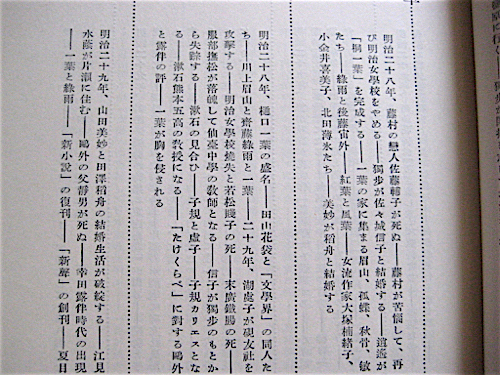 明治二十八年、藤村の戀人佐藤輔子が死ぬ――藤村が苦惱して、再
び明治女學校をやめる――獨步が佐々城信子と結婚する――逍遙が
「桐一葉」を完成する――一葉の家に集まる眉山、孤蝶、秋骨、敏
たち――綠雨と後藤宙外――紅葉と風葉――女流作家大塚楠緒子、
小金井喜美子、北田薄氷たち――美妙が稻舟と結婚する
明治二十八年、樋口一葉の盛名――田山花袋と「文學界」の同人た
ち――川上眉山と齋藤綠雨と一葉――二十九年、潮處子が硯友社を
攻擊する――明治女學校燒失と若松賤子の死――末廣鐵腸の死――
服部撫松が落魄して仙臺中學の敎師となる――信子が獨步のもとか
ら失踪する――漱石の見合ひ――子規と虛子――子規カリエスとな
る――漱石熊本五高の敎授になる――「たけくらべ」に對する鷗外
と露伴の評――一葉が胸を侵される
明治二十九年、山田美妙と田澤稻舟の結婚生活が破綻する――江見
水蔭が片瀨に住む――鷗外の父靜男が死ぬ――幸田露伴時代の出現
――一葉と綠雨――「新小說」の復刊――「新聲」の創刊――夏目